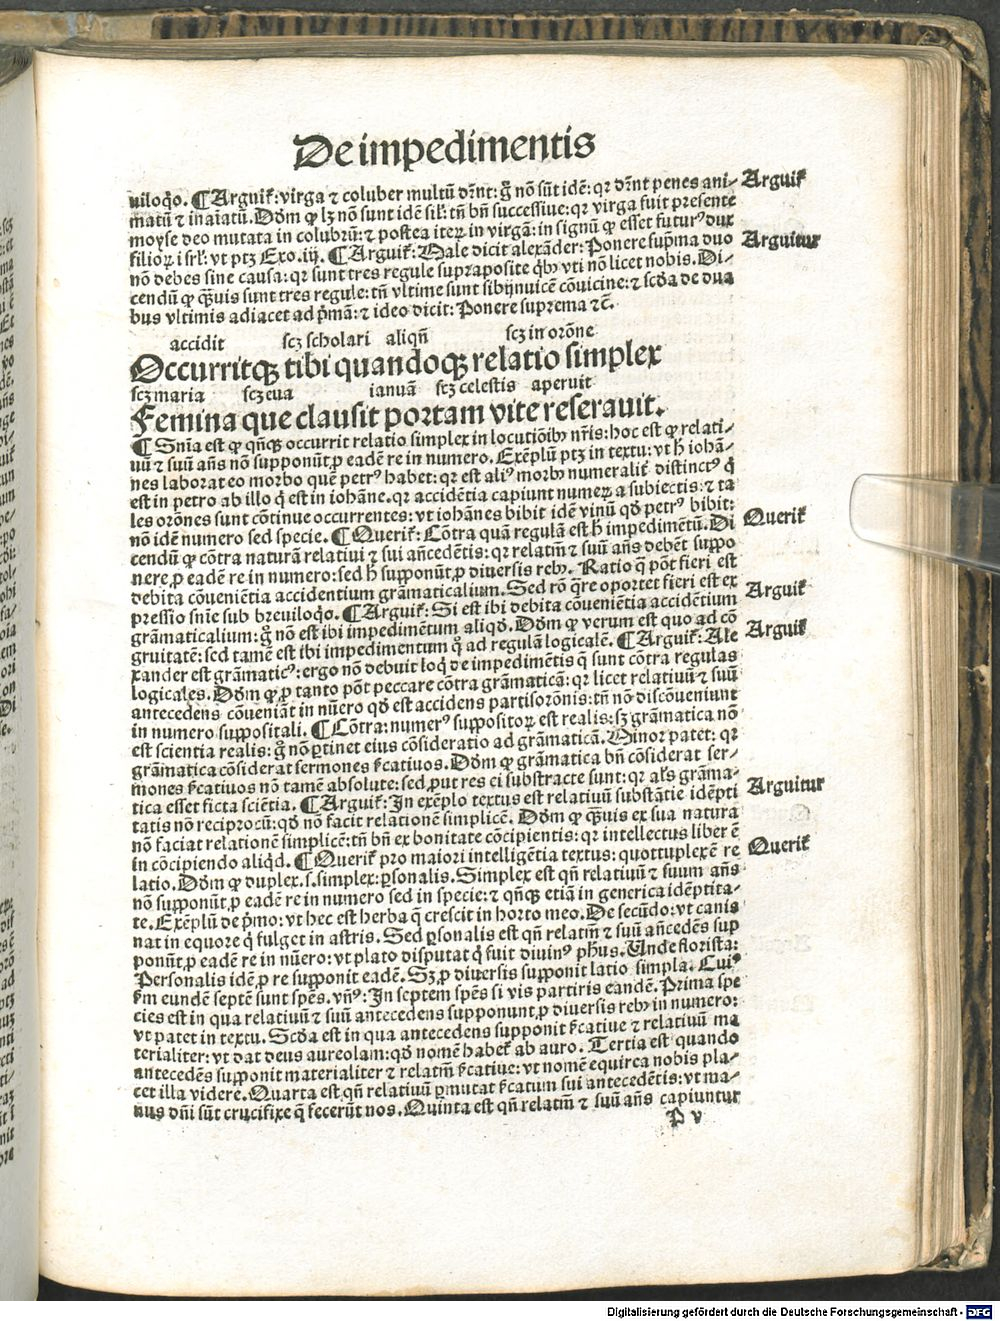 De impedimentis
uiloq̄o. ¶Arguiť: virga ⁊ coluber multū dr̄nt: g̊ nō sūt idē: qꝛ dr̄nt penes ani- Arguiť
matū ⁊ inaīatū. Dōm ꝙ lꝫ nō sunt idē sił: tn̄ bn̄ successiue: qꝛ virga fuit presente
moyse deo mutata in colubrū: ⁊ postea iteꝝ in virgā: in signū ꝙ esset futurꝰ dux
filioꝝ isrł: vt ptꝫ Exo. iiij. ¶Arguiť: Male dicit alexāder: Ponere sup̄ma duo Arguitur
nō debes sine causa: qꝛ sunt tres regule supraposite q̄bꝰ vti nō licet nobis. Di-
cendū ꝙ q̄uis sunt tres regule: tn̄ vltime sunt sibijnuicē cōuicine: ⁊ scd̄a de dua
bus vltimis adiacet ad p̄mā: ⁊ ideo dicit: Ponere suprema ⁊c̄.
accidit scꝫ scholari aliqn̄ scꝫ in orōne
Occurritqꝫ tibi quandoqꝫ relatio simplex
scꝫ maria scꝫ eua ianuā scꝫ celestis aperuit
Femina que clausit portam vite reserauit.
¶Snīa est ꝙ qn̄qꝫ occurrit relatio simplex in locutiōibꝰ nr̄is: hoc est ꝙ relati-
uū ⁊ suū an̄s nō supponūt ꝓ eadē re in numero. Exēplū ptꝫ in textu: vt h̄ iohā-
nes laborat eo morbo quē petrꝰ habet: qꝛ est aliꝰ morbꝰ numeraliť distinctꝰ q̇
est in petro ab illo q̇ est in iohāne. qꝛ accidētia capiunt numeꝝ a subiectis: ⁊ ta
les orōnes sunt cōtinue occurrentes: vt iohānes bibit idē vinū qd̄ petrꝰ bibit:
nō idē numero sed specie. ¶Queriť: Cōtra quā regulā est h̄ impedimētū. Di Queriť
cendū ꝙ cōtra naturā relatiui ⁊ sui an̄cedētis: qꝛ relatm̄ ⁊ suū an̄s debēt suppo
nere ꝓ eadē re in numero: sed h̄ supponūt ꝓ diuersis rebꝰ. Ratio q̄ pōt fieri est
debita cōueniētia accidentium grāmaticalium. Sed rō q̄re oportet fieri est ex
pressio snīe sub breuiloq̄o. ¶Arguiť: Si est ibi debita cōueniētia accidētium Arguiť
grāmaticalium: g̊ nō est ibi impedimētum aliqd̄. Dōm ꝙ verum est quo ad cō
gruitatē: sed tamē est ibi impedimentum q̊ ad regulā logicalē. ¶Arguiť: Ale Arguiť
xander est grāmaticꝰ: ergo nō debuit loq̄ de impedimētis q̄ sunt cōtra regulas
logicales. Dōm ꝙ ꝓ tanto pōt peccare cōtra grāmaticā: qꝛ licet relatiuū ⁊ suū
antecedens cōueniāt in nūero qd̄ est accidens partisorōnis: tn̄ nō discōueniunt
in numero suppositali. ¶Cōtra: numerꝰ suppositoꝝ est realis: sꝫ grāmatica nō
est scientia realis: g̊ nō ꝑtinet eius cōsideratio ad grāmaticā. Minor patet: qꝛ
grāmatica cōsiderat sermones sīcatiuos. Dōm ꝙ grāmatica bn̄ cōsiderat ser-
mones sīcatiuos nō tamē absolute: sed ꝓut res ei substracte sunt: qꝛ als grāma-
tica esset ficta sciētia. ¶Arguiť: In exēplo textus est relatiuū substātie idēpti Arguitur
tatis nō reciprocū: qd̄ nō facit relationē simplicē. Dōm ꝙ q̄uis ex sua natura
nō faciat relationē simplicē: tn̄ bn̄ ex bonitate cōcipientis: qꝛ intellectus liber ē
in cōcipiendo aliqd̄. ¶Queriť pro maiori intelligētia textus: quottuplex ē re Queriť
latio. Dōm ꝙ duplex. s. simplex: ꝑsonalis. Simplex est qn̄ relatiuū ⁊ suum an̄s
nō supponūt ꝓ eadē re in numero sed in specie: ⁊ qn̄qꝫ etiā in generica idēptita-
te. Exēplū de p̄mo: vt hec est herba q̄ crescit in horto meo. De secūdo: vt canis
nat in equore q̇ fulget in astris. Sed ꝑsonalis est qn̄ relatm̄ ⁊ suū an̄cedēs sup
ponūt ꝓ eadē re in nūero: vt plato disputat q̇ fuit diuinꝰ ph̄us. Unde florista:
Personalis idē ꝓ re supponit eadē. Sꝫ ꝓ diuersis supponit latio simpla. Cuiꝰ
sm̄ eundē septē sunt spēs. vn̄ꝰ: In septem spēs si vis partiris eandē. Prima spe
cies est in qua relatiuū ⁊ suū antecedens supponunt ꝓ diuersis rebꝰ in numero:
vt patet in textu. Scd̄a est in qua antecedens supponit sīcatiue ⁊ relatiuū ma
terialiter: vt dat deus aureolam: qd̄ nomē habeť ab auro. Tertia est quando
antecedēs supponit materialiter ⁊ relatm̄ sīcatiue: vt nomē equirea nobis pla-
cet illa videre. Quarta est qn̄ relatiuū ꝑmutat sīcatum sui antecedētis: vt ma-
nus dn̄i sūt crucifixe q̄ fecerūt nos. Quinta est qn̄ relatm̄ ⁊ suū an̄s capiuntur
P v
Digitalisierung gefördert durch die Deutsche Forschungsgemeinschaft - DFG